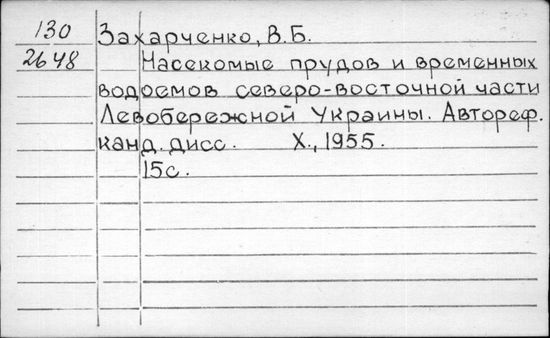 130 Захарченко, В.Б.
2648 Насекомые прудов и временных
водоемов северо-восточной части
Левобережной Украины. Автореф.
канд. дисс. Х., 1955.
15с.